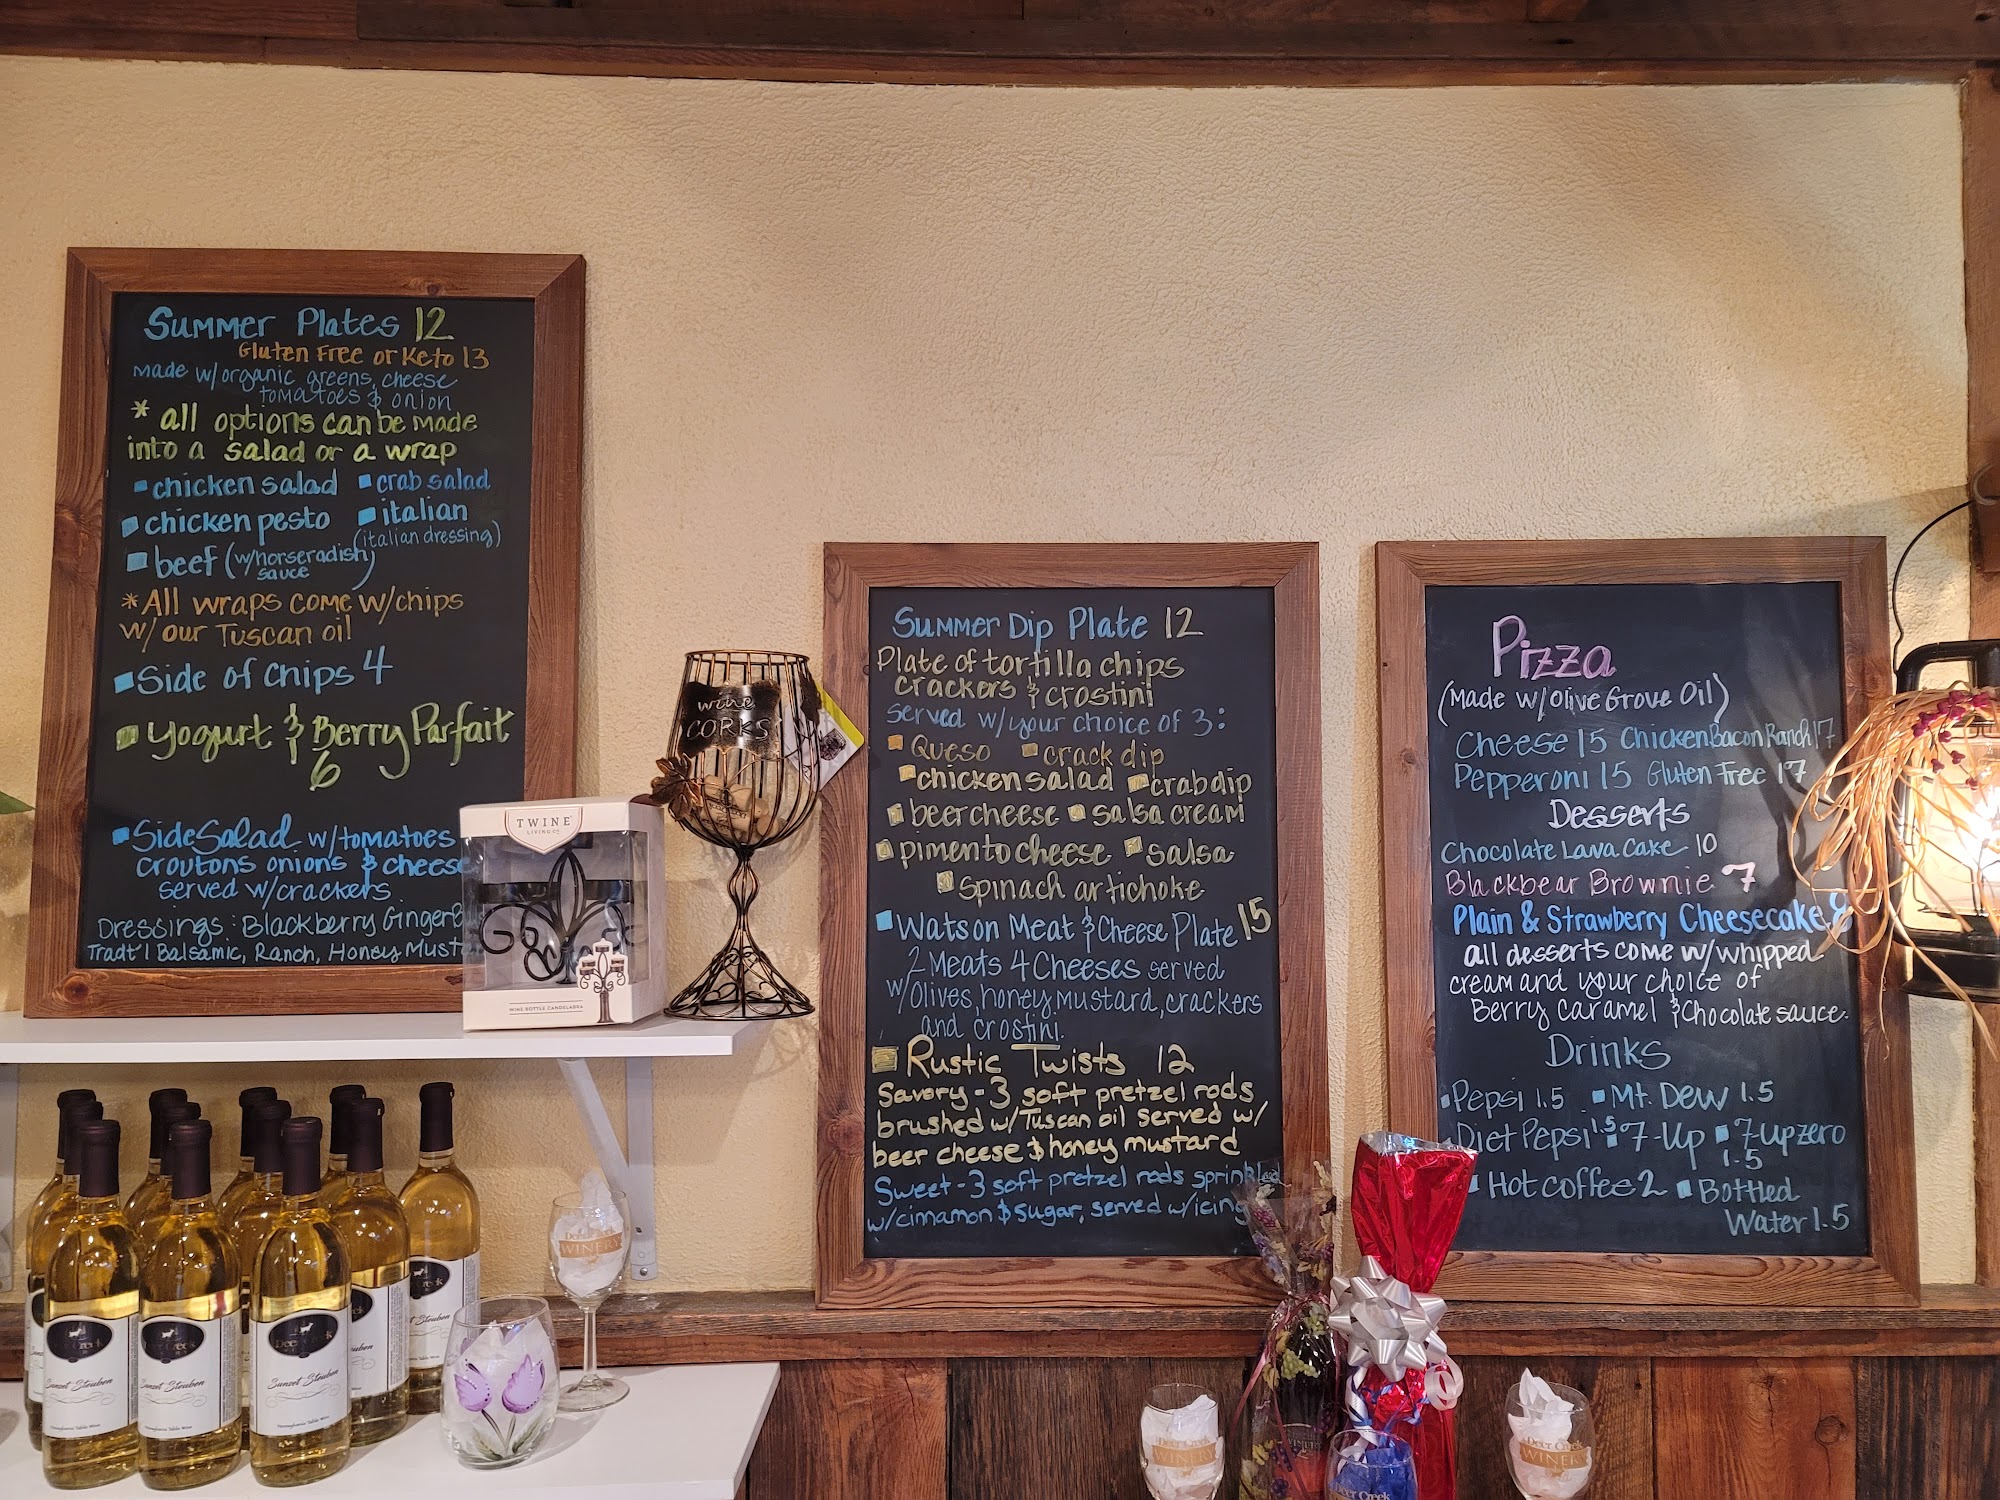 Summer Plates 12
Gluten Free or Keto 13
Made w/organic greens, cheese
tomatoes & onion
* all options can be made
into a salad or a wrap
chicken salad
crab salad
chicken pesto
italian
(italian dressing)
beef (w/horseradish
sauce)
*All wraps come w/chips
w/our Tuscan oil
Side of Chips 4
Yogurt & Berry Parfait
6
Side Salad w/tomatoes
croutons onions & cheese
served w/crackers
Dressings: Blackberry Ginger
Tradt'l Balsamic, Ranch, Honey
TWINE
LIVING CO.
WINE BOTTLE CANDELABRA
wine
CORKS
Summer Dip Plate 12
Plate of tortilla chips
crackers & crostini
served w/your choice of 3:
Queso
crack dip
chicken salad
crab dip
beer cheese
salsa cream
pimento cheese
salsa
spinach artichoke
Watson Meat & Cheese Plate 15
2 Meats 4 Cheeses served
w/olives, honey mustard, crackers
and crostini.
Rustic Twists 12
Savory - 3 soft pretzel rods
brushed w/Tuscan oil served w/
beer cheese & honey mustard
Sweet - 3 soft pretzel rods sprinkled
w/cinnamon & sugar, served w/icing
Pizza
(Made w/Olive Grove Oil)
Cheese 15 Chicken Bacon Ranch 17
Pepperoni 15 Gluten Free 17
Desserts
Chocolate Lava Cake 10
Blackbear Brownie 7
Plain & Strawberry Cheesecake 8
all desserts come w/whipped
cream and your choice of
Berry Caramel & Chocolate sauce.
Drinks
Pepsi 1.5
Mt. Dew 1.5
Diet Pepsi 1.5
7-Up
7-up zero
1.5
Hot Coffee 2
Bottled
Water 1.5
Deer Creek
Sunset Steuben
Pennsylvania Table Wine
Sunset Steuben
Deer Creek
Sunset Steuben
Pennsylvania Table Wine
Deer Creek
Sunset Steuben
Deer Creek
WINERY
Deer Creek
WINERY
Deer Creek
Deer Creek
WINERY